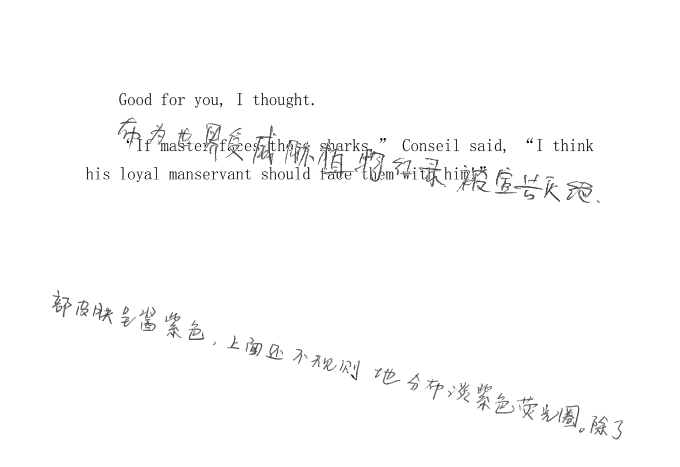 Good for you, I thought.
“If master faces these sharks,” Conseil said, “I think
his loyal manservant should face them with him!”
布为世界受威胁植物红录 被宣告灭绝.
部皮肤呈酱紫色，上面还不规则地分布淡紫色荧光圈。除了